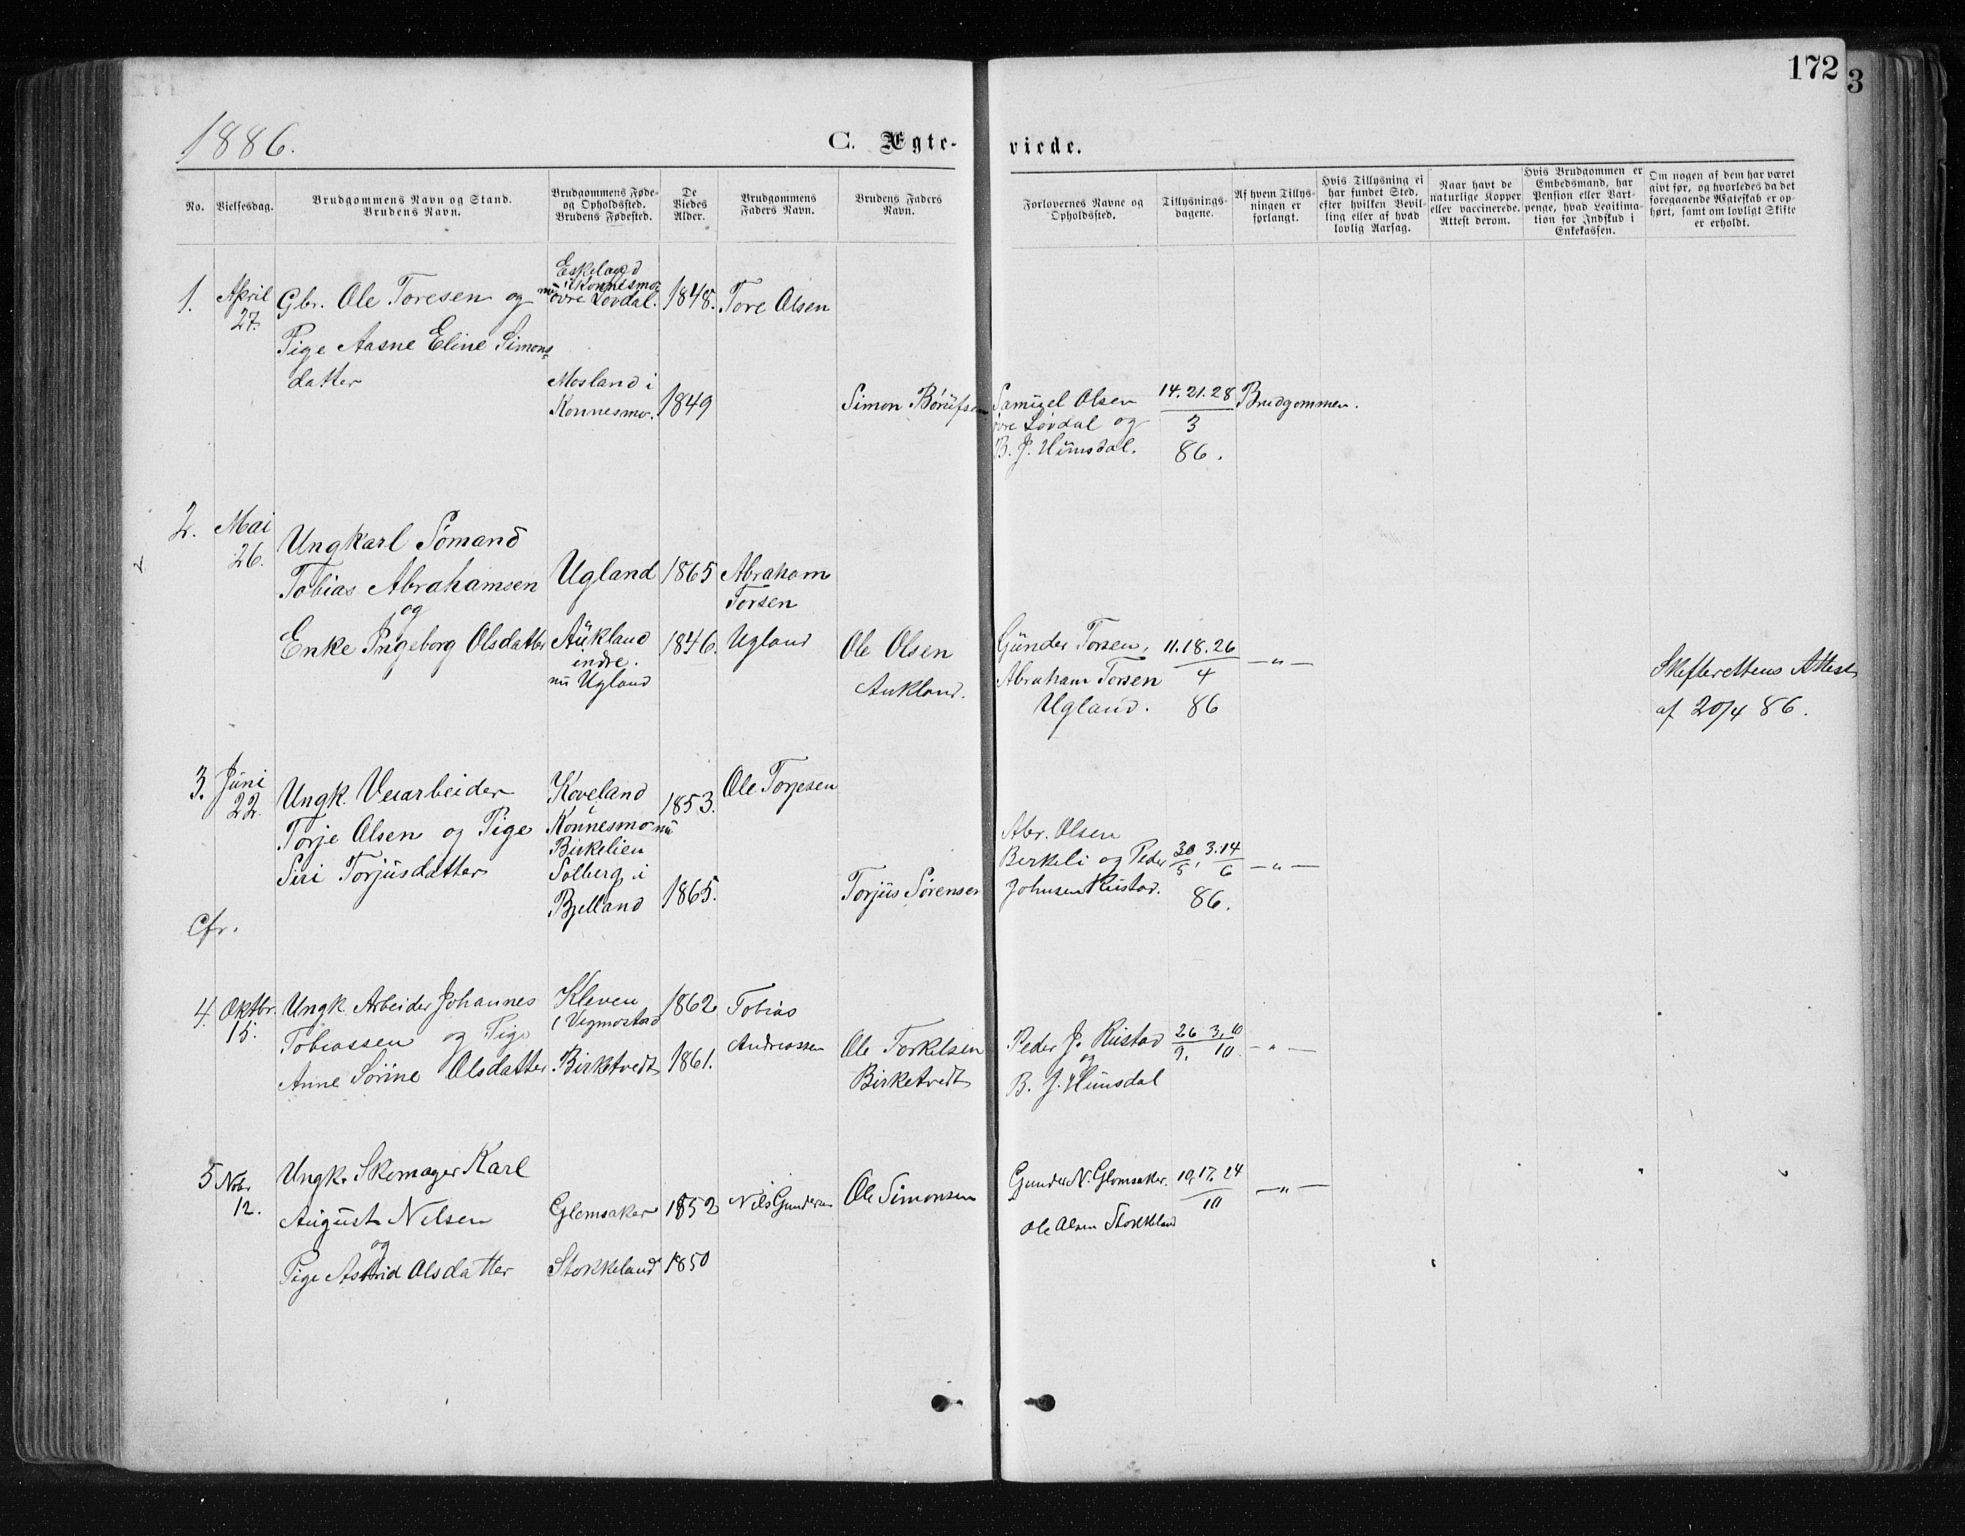 172
3
1886.
C. Ægte-
viede.
No.
Vielsesdag.
Brudgommens Navn og Stand.
Brudens Navn.
Brudgommens Føde-
og Opholdssted.
Brudens Fødested.
De
Viedes
Alder.
Brudgommens
Faders Navn.
Brudens Faders
Navn.
Forlovernes Navne og
Opholdssted.
Tillysnings-
dagene.
Af hvem Tillys-
ningen er
forlangt.
Hvis Tillysning ei
har fundet Sted,
efter hvilken Bevil-
ling eller af hvad
lovlig Aarsag.
Naar havt de
naturlige Kopper
eller vaccinerede.
Attest derom.
Hvis Brudgommen er
Embedsmand, har
Pension eller Vart-
penge, hvad Legitima-
tion for Indskud i
Enkekassen.
Om nogen af dem har været
givt før, og hvorledes da det
foregaaende Ægteskab er op-
hørt, samt om lovligt Skifte
er erholdt.
1.
April
27.
Gbr. Ole Toresen og
Pige Aasne Eline Simons=
datter
Eskeland
i Konnesmo
nu øvre Løvdal.
Mosland i
Konnesmo.
1848.
1849
Tore Olsen
Simon Børufsen
Samuel Olsen
øvre Løvdal og
B. J. Hunsdal.
14. 21. 28
3
86.
Brudgommen.
2.
Mai
26.
Ungkarl Sømand
Tobias Abrahamsen
og
Enke Ingeborg Olsdatter
Ugland
Aukland
indre.
nu Ugland
1865
1846.
Abraham
Torsen
Ugland
Ole Olsen
Aukland.
Gunder Torsen,
Abraham Torsen
Ugland.
11. 18. 26
4
86
— „ —
Skifterettens Attest
af 20/4 86.
3.
Juni
22.
Ungk. Veiarbeider
Torje Olsen og Pige
Siri Torjusdatter
Koveland
i
Konnesmo nu
Birkelien
Solberg i
Bjelland
1853.
1865.
Ole Torjesen
Torjus Sørensen
Abr. Olsen
Birkeli og Peder
Johnsen Rustad.
30/5, 3.14/6
86.
— „ —
Cfr.
4.
Oktbr.
15.
Ungk. Arbeider Johannes
Tobiassen og Pige
Anne Sørine Olsdatter
Kleven
i Vegmostad
Birketvedt
1862
1861.
Tobias
Andreassen
Ole Torkelsen
Birketvedt
Peder J. Rustad
og
B. J. Hunsdal
26/9. 3, 10/10.
— „ —
5
Nobr.
12.
Ungk. Skomager Karl
August Nilsen
og
Pige Astrid Olsdatter
Glomsaker
Stokkeland
1852
1850
Nils Gundersen
Ole Simonsen
Gunder N. Glomsaker.
Ole Olsen Stokkeland
10, 17. 24
10
— „ —